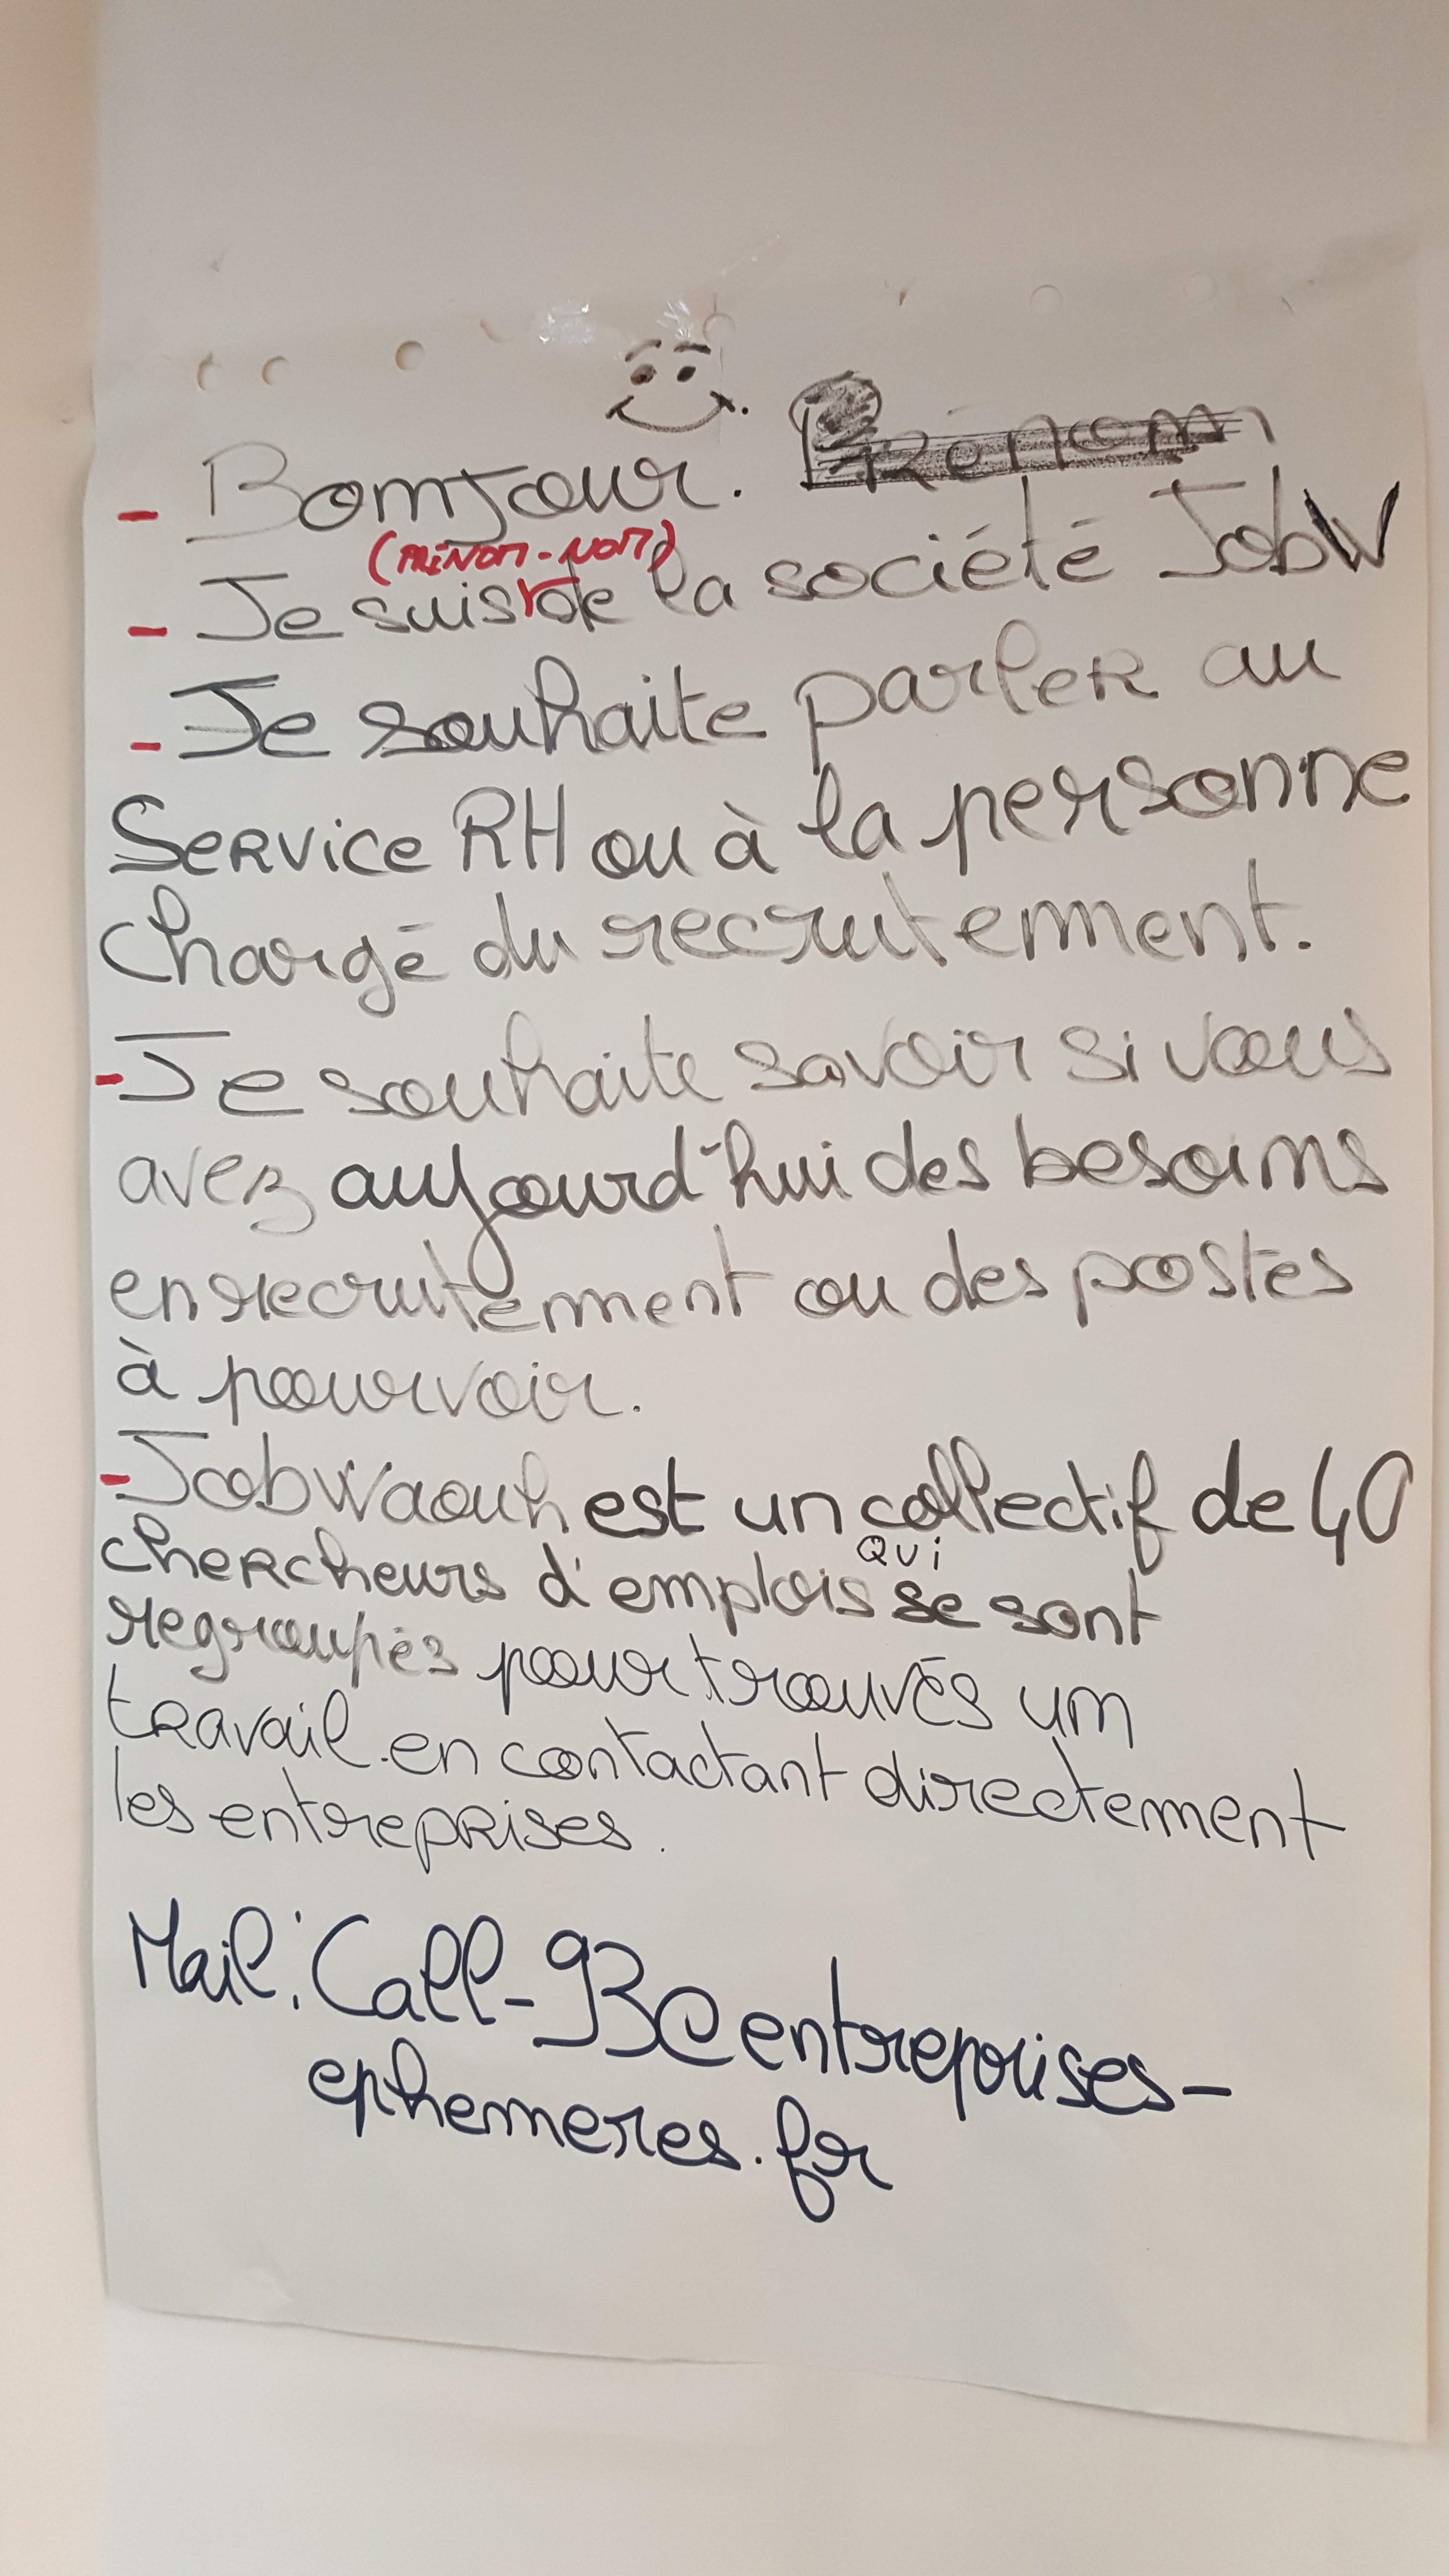 - Bonjour. Prénom
(PRÉNOM-NOM)
- Je suis de la société JobW
- Je souhaite parler au
Service RH ou à la personne
chargé du recrutement.
- Je souhaite savoir si vous
avez aujourd'hui des besoins
en recrutement ou des postes
à pourvoir.
- JobWaouh est un collectif de 40
qui
chercheurs d'emplois se sont
regroupés pour trouvés un
travail en contactant directement
les entreprises.
Mail: Call-93@entreprises-
ephemeres.fr